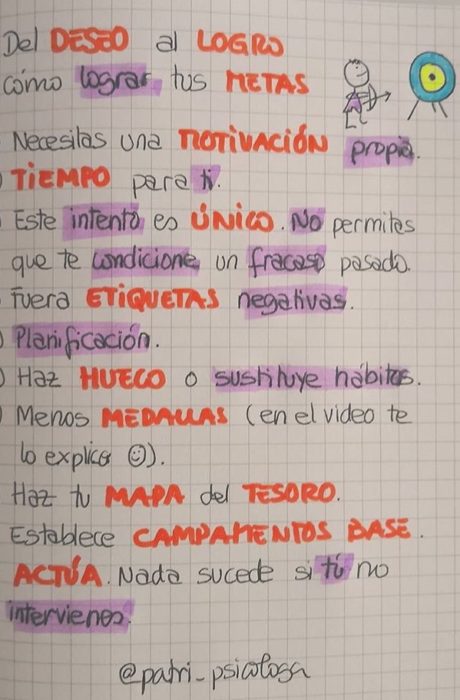 Del DESEO al LOGRO
cómo lograr tus METAS
Necesitas una MOTIVACIÓN propia.
TIEMPO para ti.
Este intento es ÚNICO. No permites
que te condicione un fracaso pasado.
Fuera ETIQUETAS negativas.
Planificación.
Haz HUECO o sustituye hábitos.
Menos MEDALLAS (en el video te
lo explico ☺).
Haz tu MAPA del TESORO.
Establece CAMPAMENTOS BASE.
ACTÚA. Nada sucede si tú no
intervienes.
@patri_psicologa